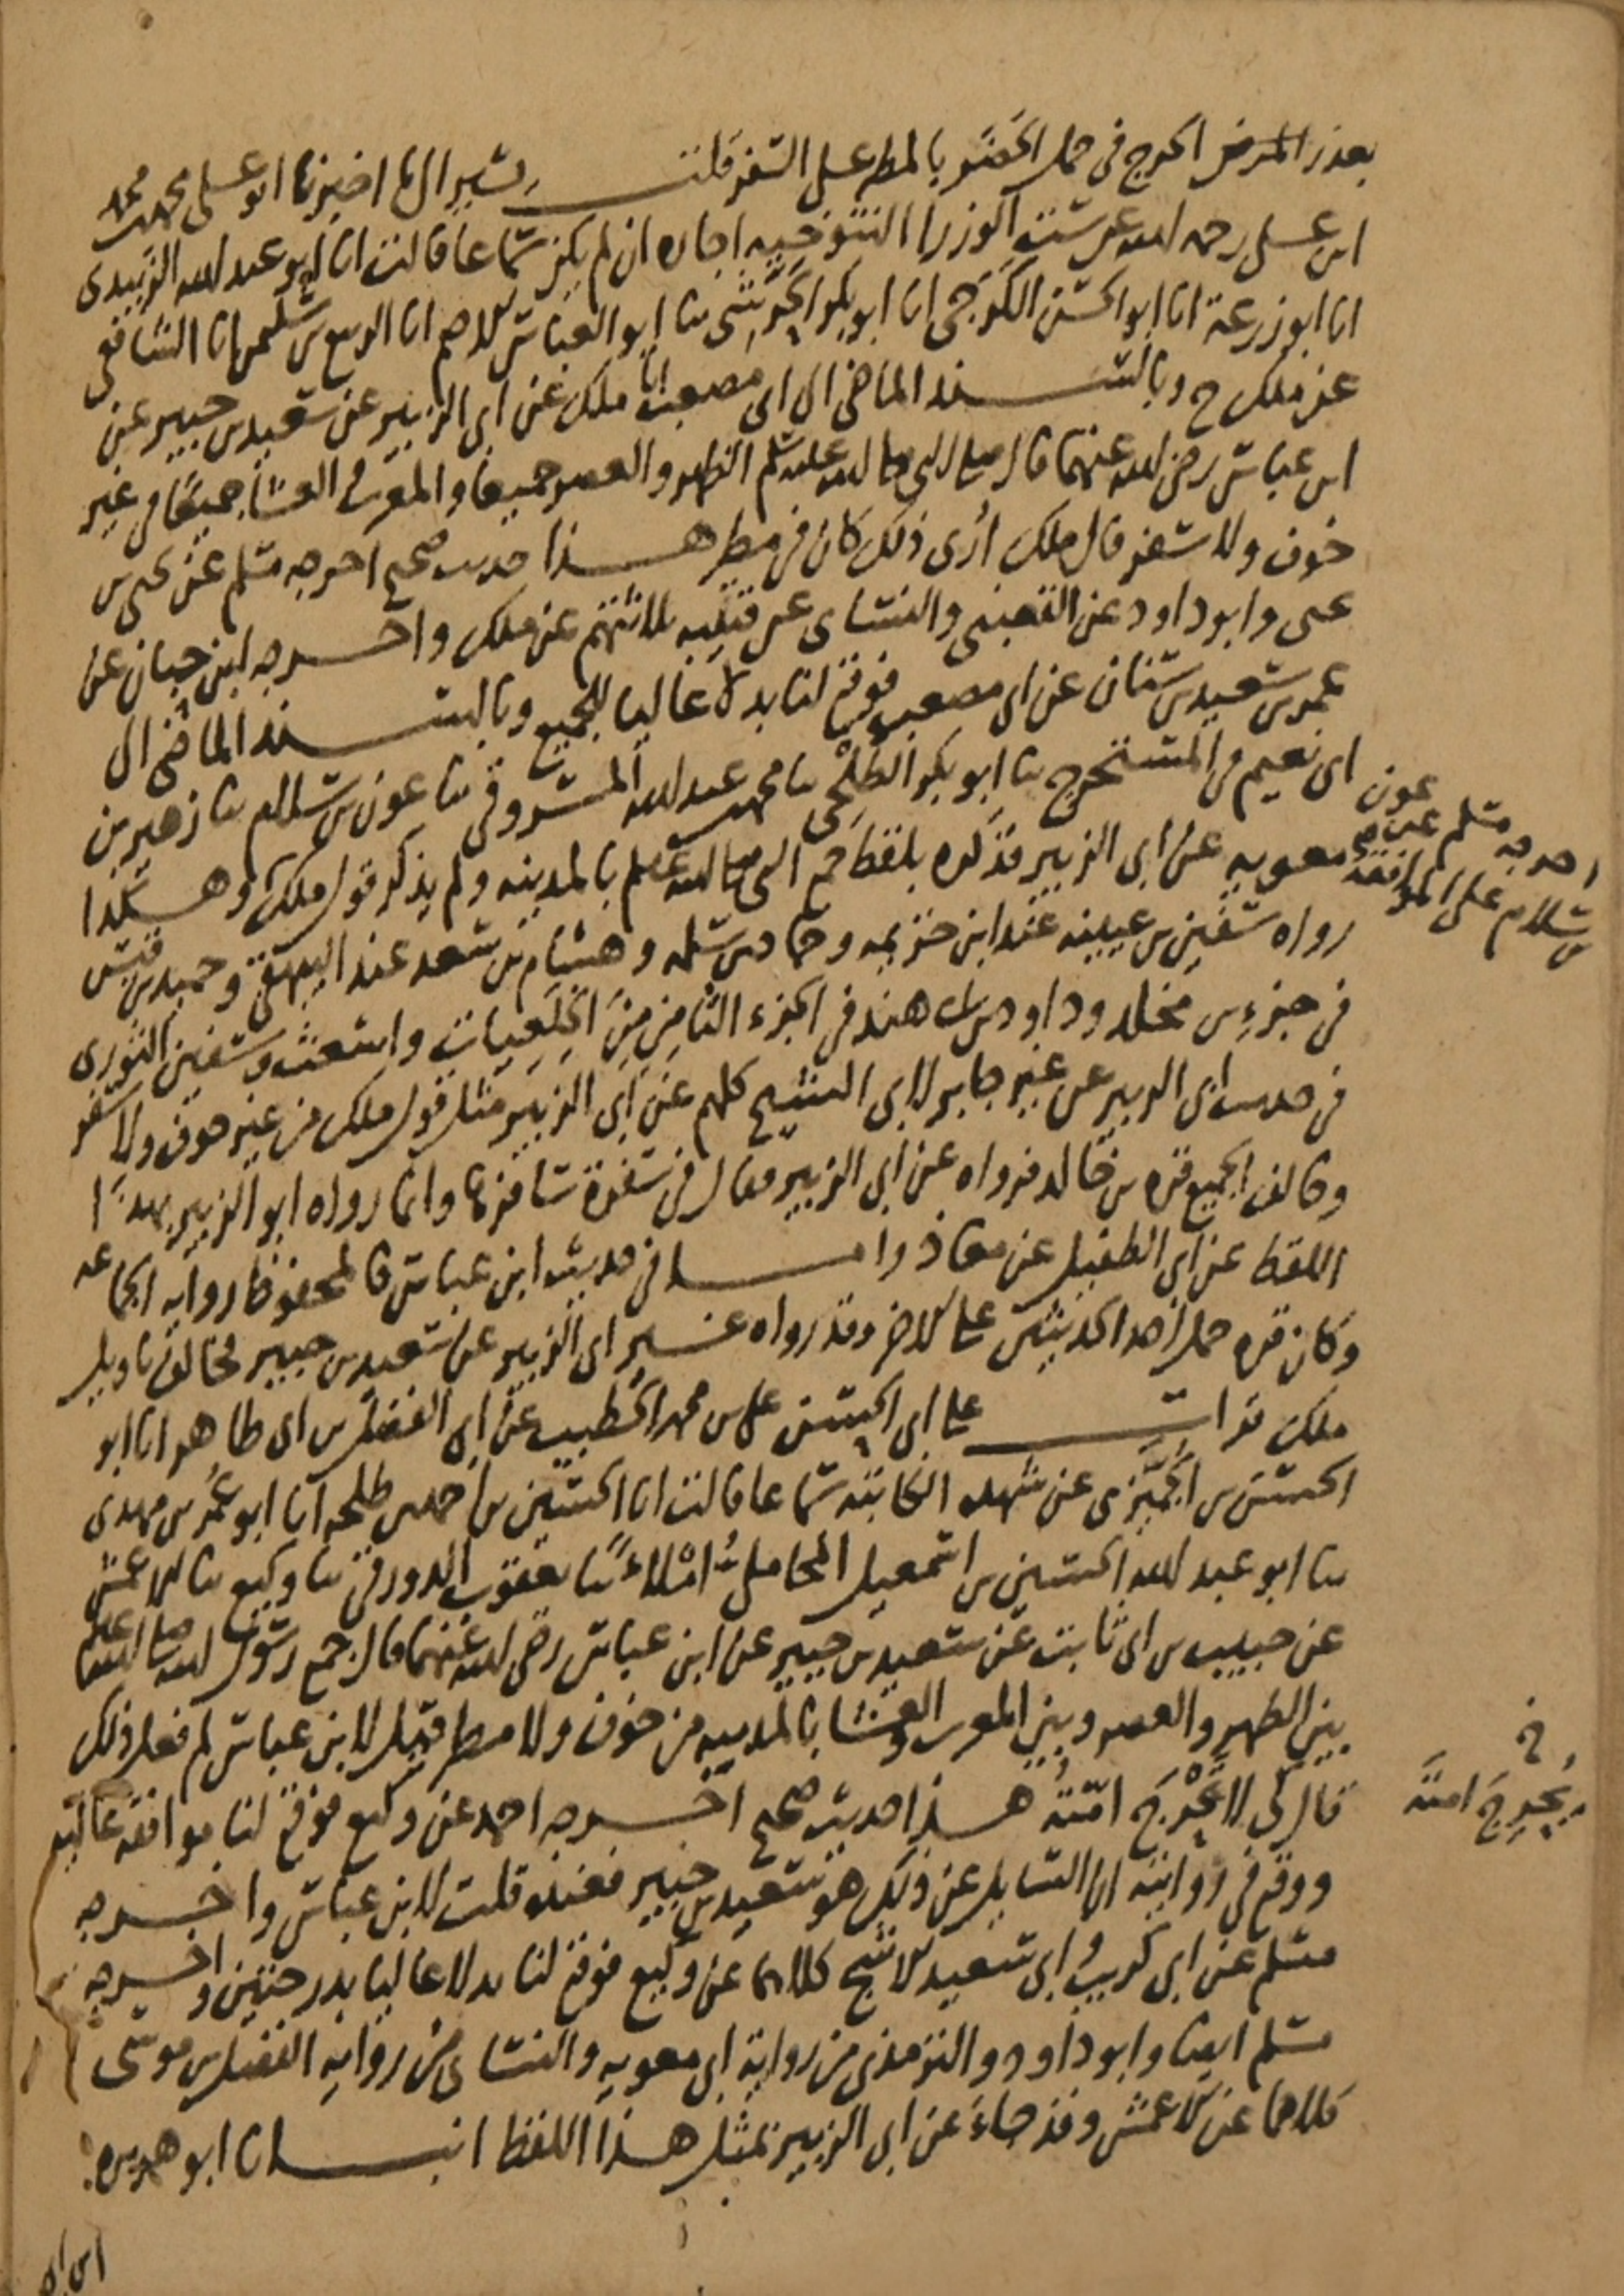 بعذر المرض الحرج في حمل الحضر بالمطر على السفر قلت يشير الى ما اخبرنا ابو على محمد بن محمد
ابن على رحمه الله عن ست الوزرا التنوخيه اجازه ان لم يكن سماعا قالت انا ابو عبد الله الزبيدي
انا ابو زرعة انا ابو الحسن الكرجي انا ابو بكر الحرشي ثنا ابو العباس الاصم انا الربيع بن سليمن انا الشافعي
عن ملك ح وبالسند الماضي الى ابي مصعب انا ملك عن ابي الزبير عن سعيد بن جبير عن
ابن عباس رضي الله عنهما قال صلى النبي صلى الله عليه وسلم الظهر والعصر جميعا والمغرب والعشا جميعًا في غير
خوف ولا سفر قال ملك أرى ذلك كان في مطر هذا حديث صحيح اخرجه مسلم عن يحيى بن
يحيى وابو داود عن القعنبي والنسائي عن قتيبه ثلاثتهم عن ملك واخرجه ابن حبان عن
عمر بن سعيد بن سنان عن ابي مصعب فوقع لنا بدلا عاليا للجميع وبالسند الماضي الى
ابي نعيم في المستخرج ثنا ابو بكر الطلحي ثنا محمد بن عبد الله المسروقي ثنا عون بن سلام ثنا زهير بن
معويه عن ابي الزبير فذكره بلفظ جمع النبي صلى الله عليه وسلم بالمدينه ولم يذكر قول ملك وهكذا
اخرجه مسلم عن عون
بن سلام على الموافقه
رواه سفين بن عيينه عند ابن خزيمه وحماد بن سلمه وهشام بن سعد عند البيهقي وحميد بن قيس
في جزء بن مخلد وداود بن ابي هند في الجزء الثامن من الخلعيات واشعث وسفين الثوري
في حديث ابي الزبير عن غير جابر لابي الشيخ كلهم عن ابي الزبير مثل قول ملك من غير خوف ولا سفر
وخالف الجميع قره بن خالد فرواه عن ابي الزبير فقال في سفرة سافرها وانما رواه ابو الزبير بهذا
اللفظ عن ابي الطفيل عن معاذ واما في حديث ابن عباس فالمحفوظ روايه الجماعه
وكان قره حمل احد الحديثين على الاخر وقد رواه غير ابي الزبير عن سعيد بن جبير مخالف تاويل
ملك قرات على ابي الحسن علي بن محمد الخطيب عن ابي الفضل بن ابي طاهر انا ابو
الحسن بن الجميزي عن شهده الكاتبه سماعا قالت انا الحسين بن احمد بن طلحه انا ابو عمر بن مهدي
ثنا ابو عبد الله الحسين بن اسمعيل المحاملي املاءً ثنا يعقوب الدورقي ثنا وكيع ثنا الاعمش
عن حبيب بن ابي ثابت عن سعيد بن جبير عن ابن عباس رضي الله عنهما قال جمع رسول الله صلى الله عليه وسلم
بين الظهر والعصر وبين المغرب والعشا بالمدينه من خوف ولا مطر قيل لابن عباس لم فعل ذلك
قال كي لا تحْرَجَ امّتهُ هذا حديث صحيح اخرجه احمد عن وكيع فوقع لنا موافقه عاليه
خ
يُحْرِجَ امتَه
ووقع في روايته ان السايل عن ذلك هو سعيد بن جبير فعنده قلت لابن عباس واخرجه
مسلم عن ابي كريب وابي سعيد الاشج كلاهما عن وكيع فوقع لنا بدلا عاليا بدرجتين واخرجه
مسلم ايضا وابو داود والترمذي من رواية ابي معويه والنسائي من روايه الفضل بن موسى
كلاهما عن الاعمش وقد جاءَ عن ابي الزبير بمثل هذا اللفظ انبانا ابو هريره
ابن ابي